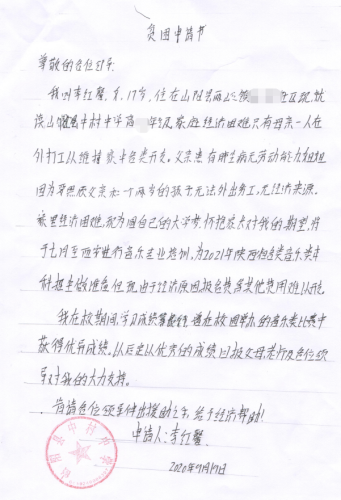 贫困申请书
尊敬的各位领导:
我叫李红馨,女,17岁,住在山阳县
读山阳县中村中学高 年级,家庭经济困难只有母亲一人在
外打工以维持家中各类开支。父亲患有 病无劳动能力,姐姐
因为要照顾父亲和一个两岁的孩子无法外出务工,无经济来源。
家里经济困难,我为圆自己的大学梦,怀抱家长对我的期望,并
于七月至西安进行音乐专业培训,为2021年陕西省艺类音乐类本
科招生做准备,但现由于经济原因报名费等其他费用难以

我在校期间,学习成绩 ,通在校园举办的音乐类比赛中
获得优异成绩。以后定以优秀的成绩回报父母老师及各位领
导对我的大力支持。
肯请各位领导伸出援助之手,给予经济帮助!
申请人:李红馨
2020年7月17日
山阳县中村中学